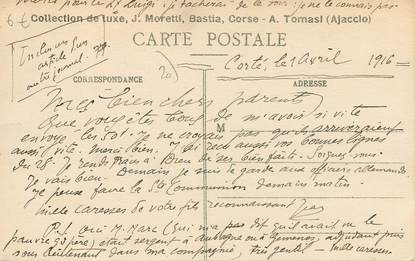 Collection de luxe, J. Moretti, Bastia, Corse - A. Tomasi (Ajaccio)
6 €
CARTE POSTALE
Inclus un
article
autre journal.
20
Corte, le 1 Avril 1916
CORRESPONDANCE
ADRESSE
M
Mes bien chers parents
Que vous êtes bons de m'avoir si vite
envoyé les 50f. Je ne croyais pas qu'ils arriveraient
aussi vite. Merci bien. J'ai reçu aussi vos bonnes lignes
du 28. Je rends grâce à Dieu de ses bienfaits. Soignez-vous.
Je vais bien. Demain je suis de garde aux affaires allemandes
je pense faire la Ste Communion demain matin.
Mille caresses de votre fils reconnaissant Jean
P.S. oui M. Marc (qui m'a pas dit qu'il avait vu le
pauvre père) était sergent à Aubagne ou à Gemenos, adjudant puis
sous lieutenant dans ma compagnie, très gentil - mille caresses